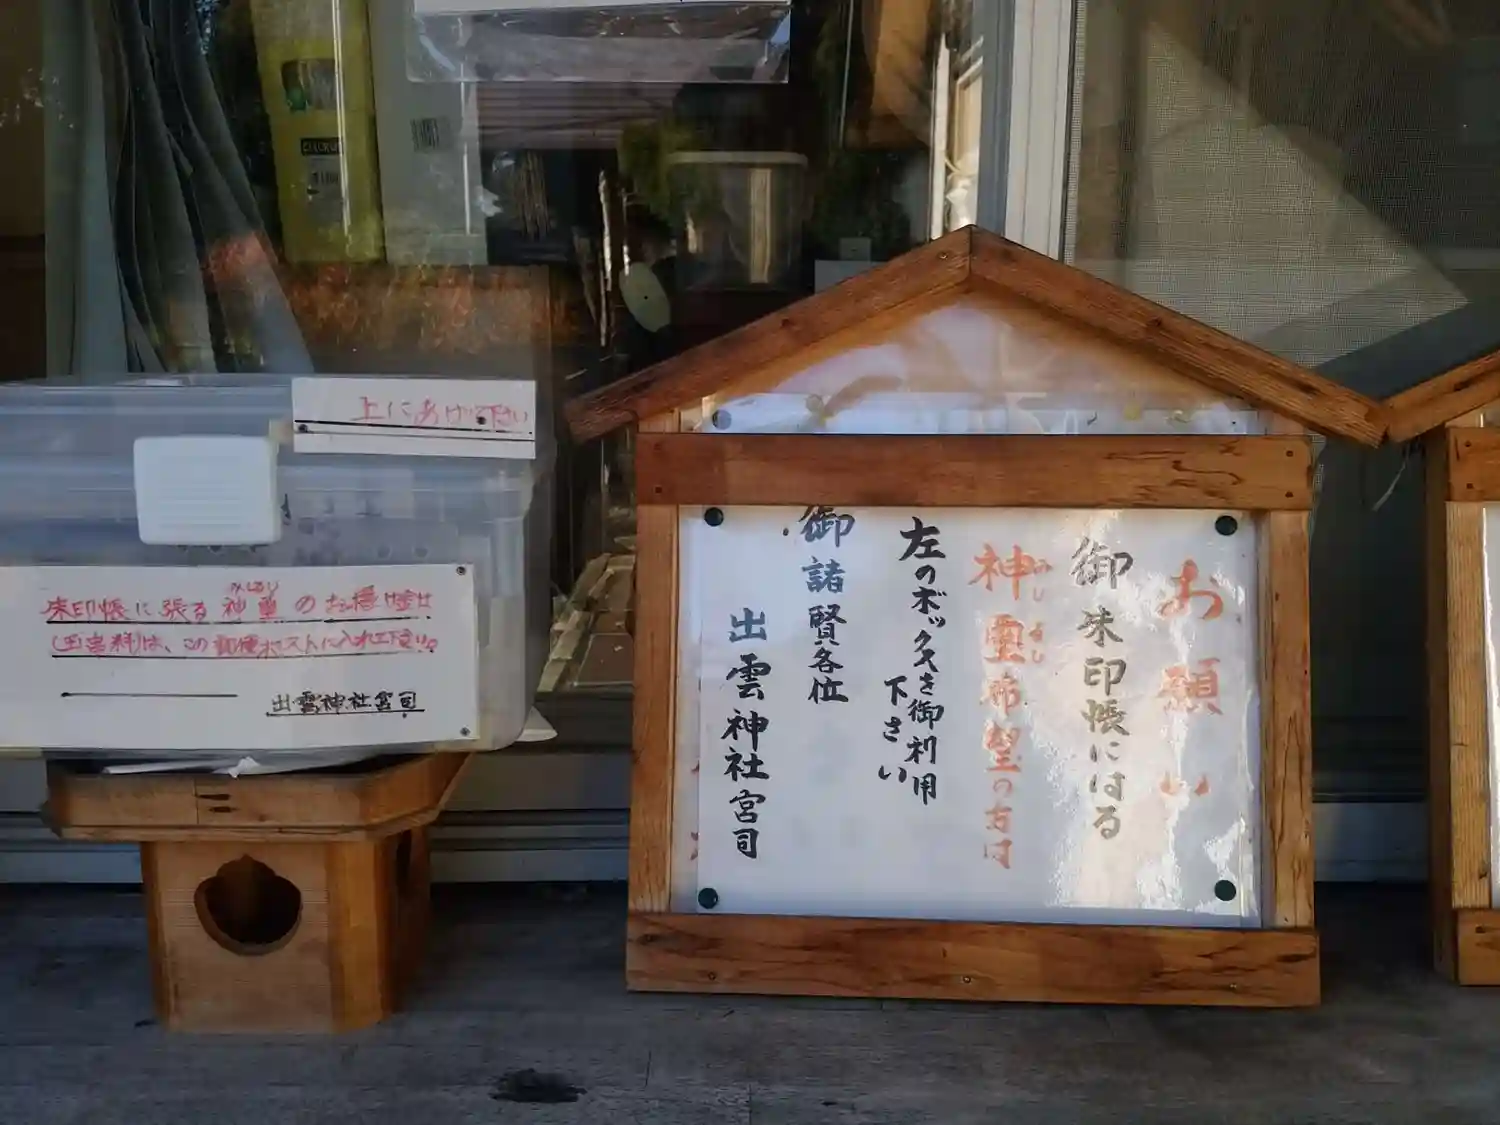 上にあけて下さい
みしるし
朱印帳に張る神璽のお
は、この郵便ポストに入れて下さい。
出雲神社宮司
お願い
御朱印帳にはる
神璽希望の方は
みしるし
左のボックスを御利用
下さい
御諸賢各位
出雲神社宮司